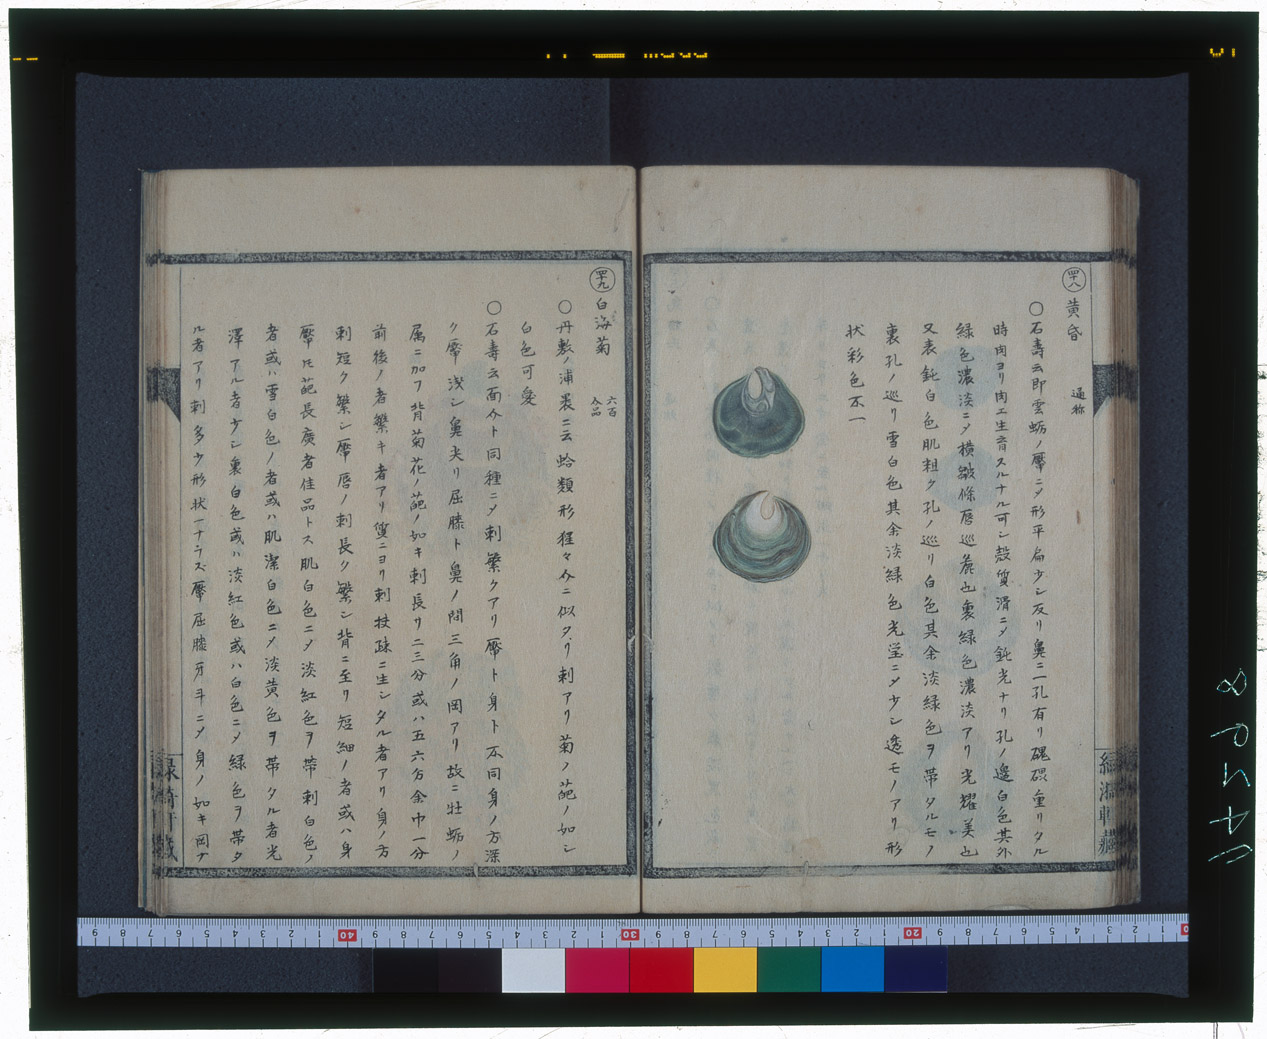 四八 黄昏 通称
〇石壽云即雲蛎ノ屬ニメ形平扁少シ反リ鼻ニ一孔有リ磈礧重リタル
時肉ヨリ肉エ生育スルナル可シ殻質滑ニメ鈍光ナリ孔ノ邊白色其外
緑色濃淡ニメ横皺條唇巡麁也裏緑色濃淡アリ光耀美也
又表鈍白色肌粗ク孔ノ巡リ白色其余淡緑色ヲ帯タルモノ
裏孔ノ巡リ雪白色其余淡緑色光瑩ニメ少シ透モノアリ形
状彩色不一
緑漪軒蔵
四九 白海菊 六百介品
〇丹敷ノ浦裹ニ云蛤類形猩々介ニ似タリ刺アリ菊ノ葩ノ如シ
白色可愛
〇石壽云面介ト同種ニメ刺繁クアリ屬ト身ト不同身ノ方深
ク屬浅シ鼻尖リ屈膝ト鼻ノ間三角ノ岡アリ故ニ牡蛎ノ
属ニ加フ背菊花ノ葩ノ如キ刺長サ二三分或ハ五六分余巾一分
前後ノ者繁キ者アリ質ニヨリ刺枝疎ニ生シタル者アリ身ノ方
刺短ク繁シ屬唇ノ刺長ク繁シ背ニ至リ短細ノ者或ハ身
屬氏葩長廣者佳品トス肌白色ニメ淡紅色ヲ帯刺白色ノ
者或ハ雪白色ノ者或ハ肌潔白色ニメ淡黄色ヲ帯タル者光
澤アル者少シ裏白色或ハ淡紅色或ハ白色ニメ緑色ヲ帯タ
ル者アリ刺多少形状一ナラズ屬屈膝牙斗ニメ身ノ如キ岡ナ
緑漪軒蔵